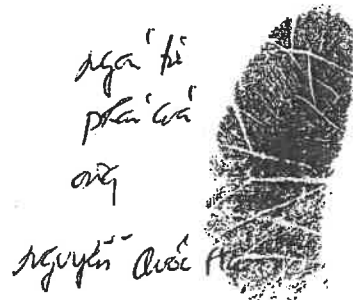 ngón trỏ
phải của
ông
Nguyễn Quốc